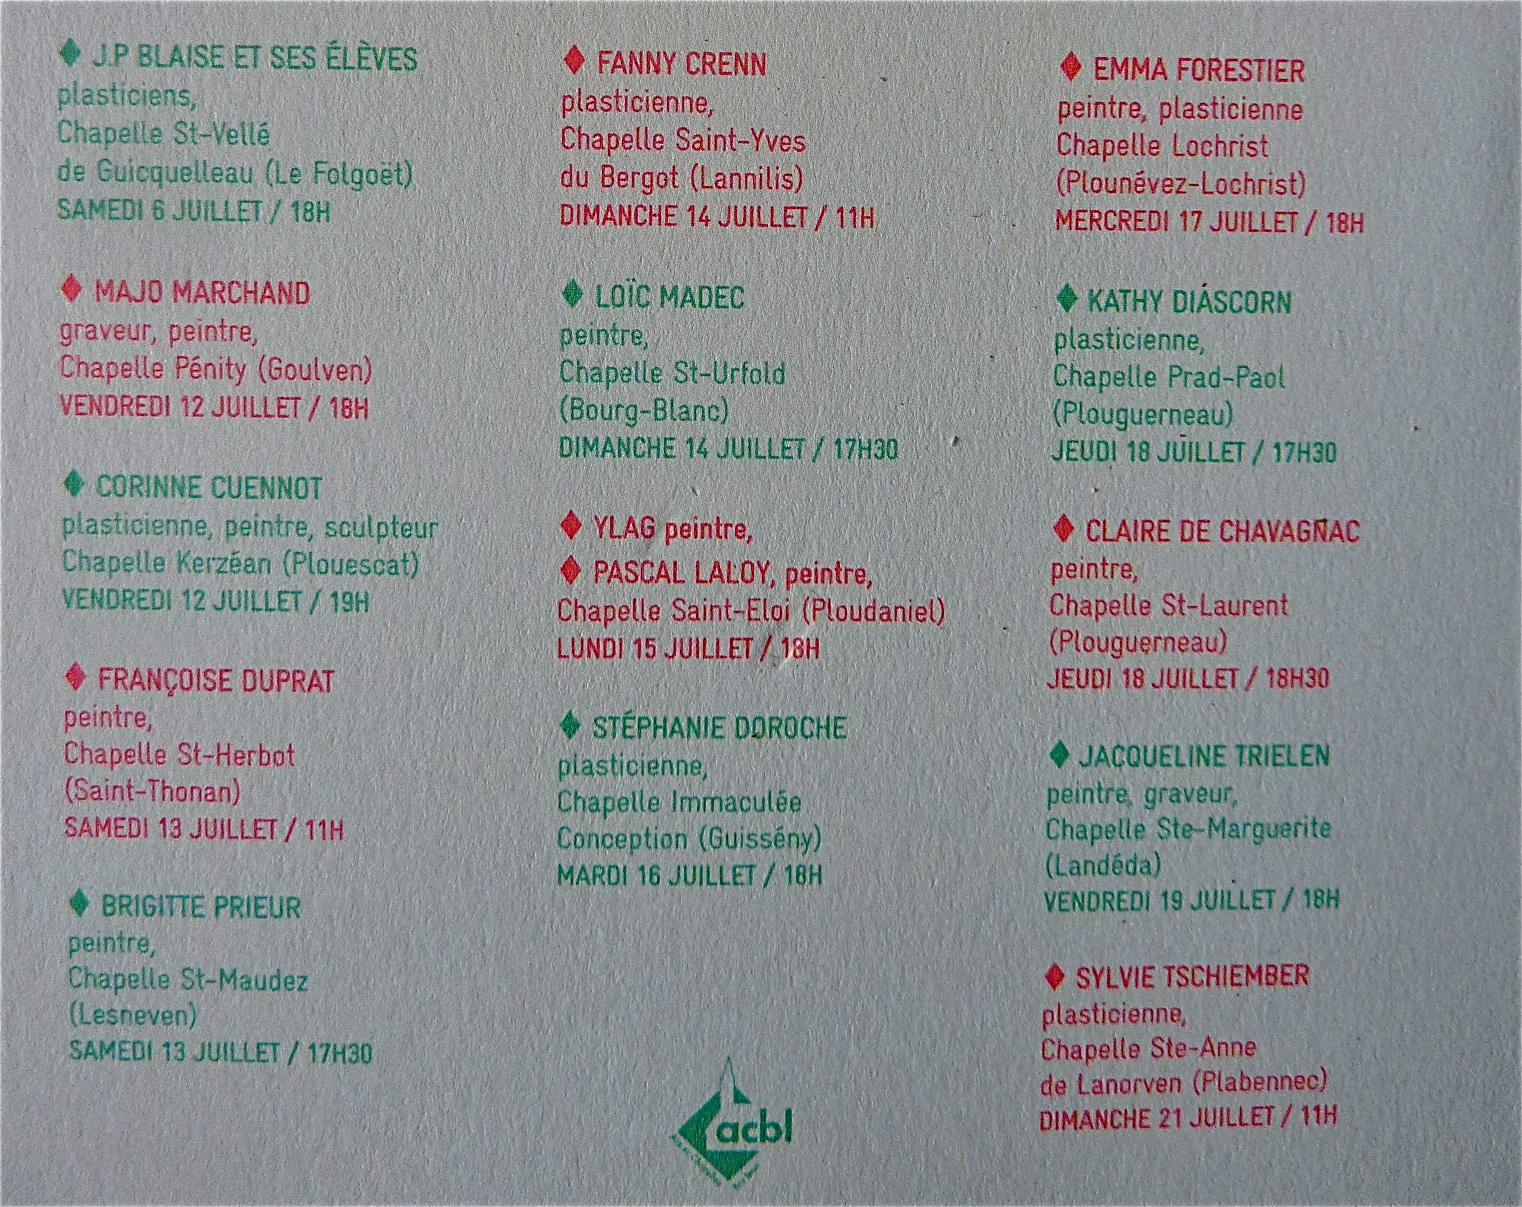 ♦ J.P BLAISE ET SES ÉLÈVES
plasticiens,
Chapelle St-Vellé
de Guicquelleau (Le Folgoët)
SAMEDI 6 JUILLET / 18H
♦ MAJO MARCHAND
graveur, peintre,
Chapelle Pénity (Goulven)
VENDREDI 12 JUILLET / 18H
♦ CORINNE CUENNOT
plasticienne, peintre, sculpteur
Chapelle Kerzéan (Plouescat)
VENDREDI 12 JUILLET / 19H
♦ FRANÇOISE DUPRAT
peintre,
Chapelle St-Herbot
(Saint-Thonan)
SAMEDI 13 JUILLET / 11H
♦ BRIGITTE PRIEUR
peintre,
Chapelle St-Maudez
(Lesneven)
SAMEDI 13 JUILLET / 17H30
♦ FANNY CRENN
plasticienne,
Chapelle Saint-Yves
du Bergot (Lannilis)
DIMANCHE 14 JUILLET / 11H
♦ LOÏC MADEC
peintre,
Chapelle St-Urfold
(Bourg-Blanc)
DIMANCHE 14 JUILLET / 17H30
♦ YLAG peintre,
♦ PASCAL LALOY, peintre,
Chapelle Saint-Eloi (Ploudaniel)
LUNDI 15 JUILLET / 18H
♦ STÉPHANIE DOROCHE
plasticienne,
Chapelle Immaculée
Conception (Guissény)
MARDI 16 JUILLET / 18H
acbl
♦ EMMA FORESTIER
peintre, plasticienne
Chapelle Lochrist
(Plounévez-Lochrist)
MERCREDI 17 JUILLET / 18H
♦ KATHY DIASCORN
plasticienne,
Chapelle Prad-Paol
(Plouguerneau)
JEUDI 18 JUILLET / 17H30
♦ CLAIRE DE CHAVAGNAC
peintre,
Chapelle St-Laurent
(Plouguerneau)
JEUDI 18 JUILLET / 18H30
♦ JACQUELINE TRIELEN
peintre, graveur,
Chapelle Ste-Marguerite
(Landéda)
VENDREDI 19 JUILLET / 18H
♦ SYLVIE TSCHIEMBER
plasticienne,
Chapelle Ste-Anne
de Lanorven (Plabennec)
DIMANCHE 21 JUILLET / 11H